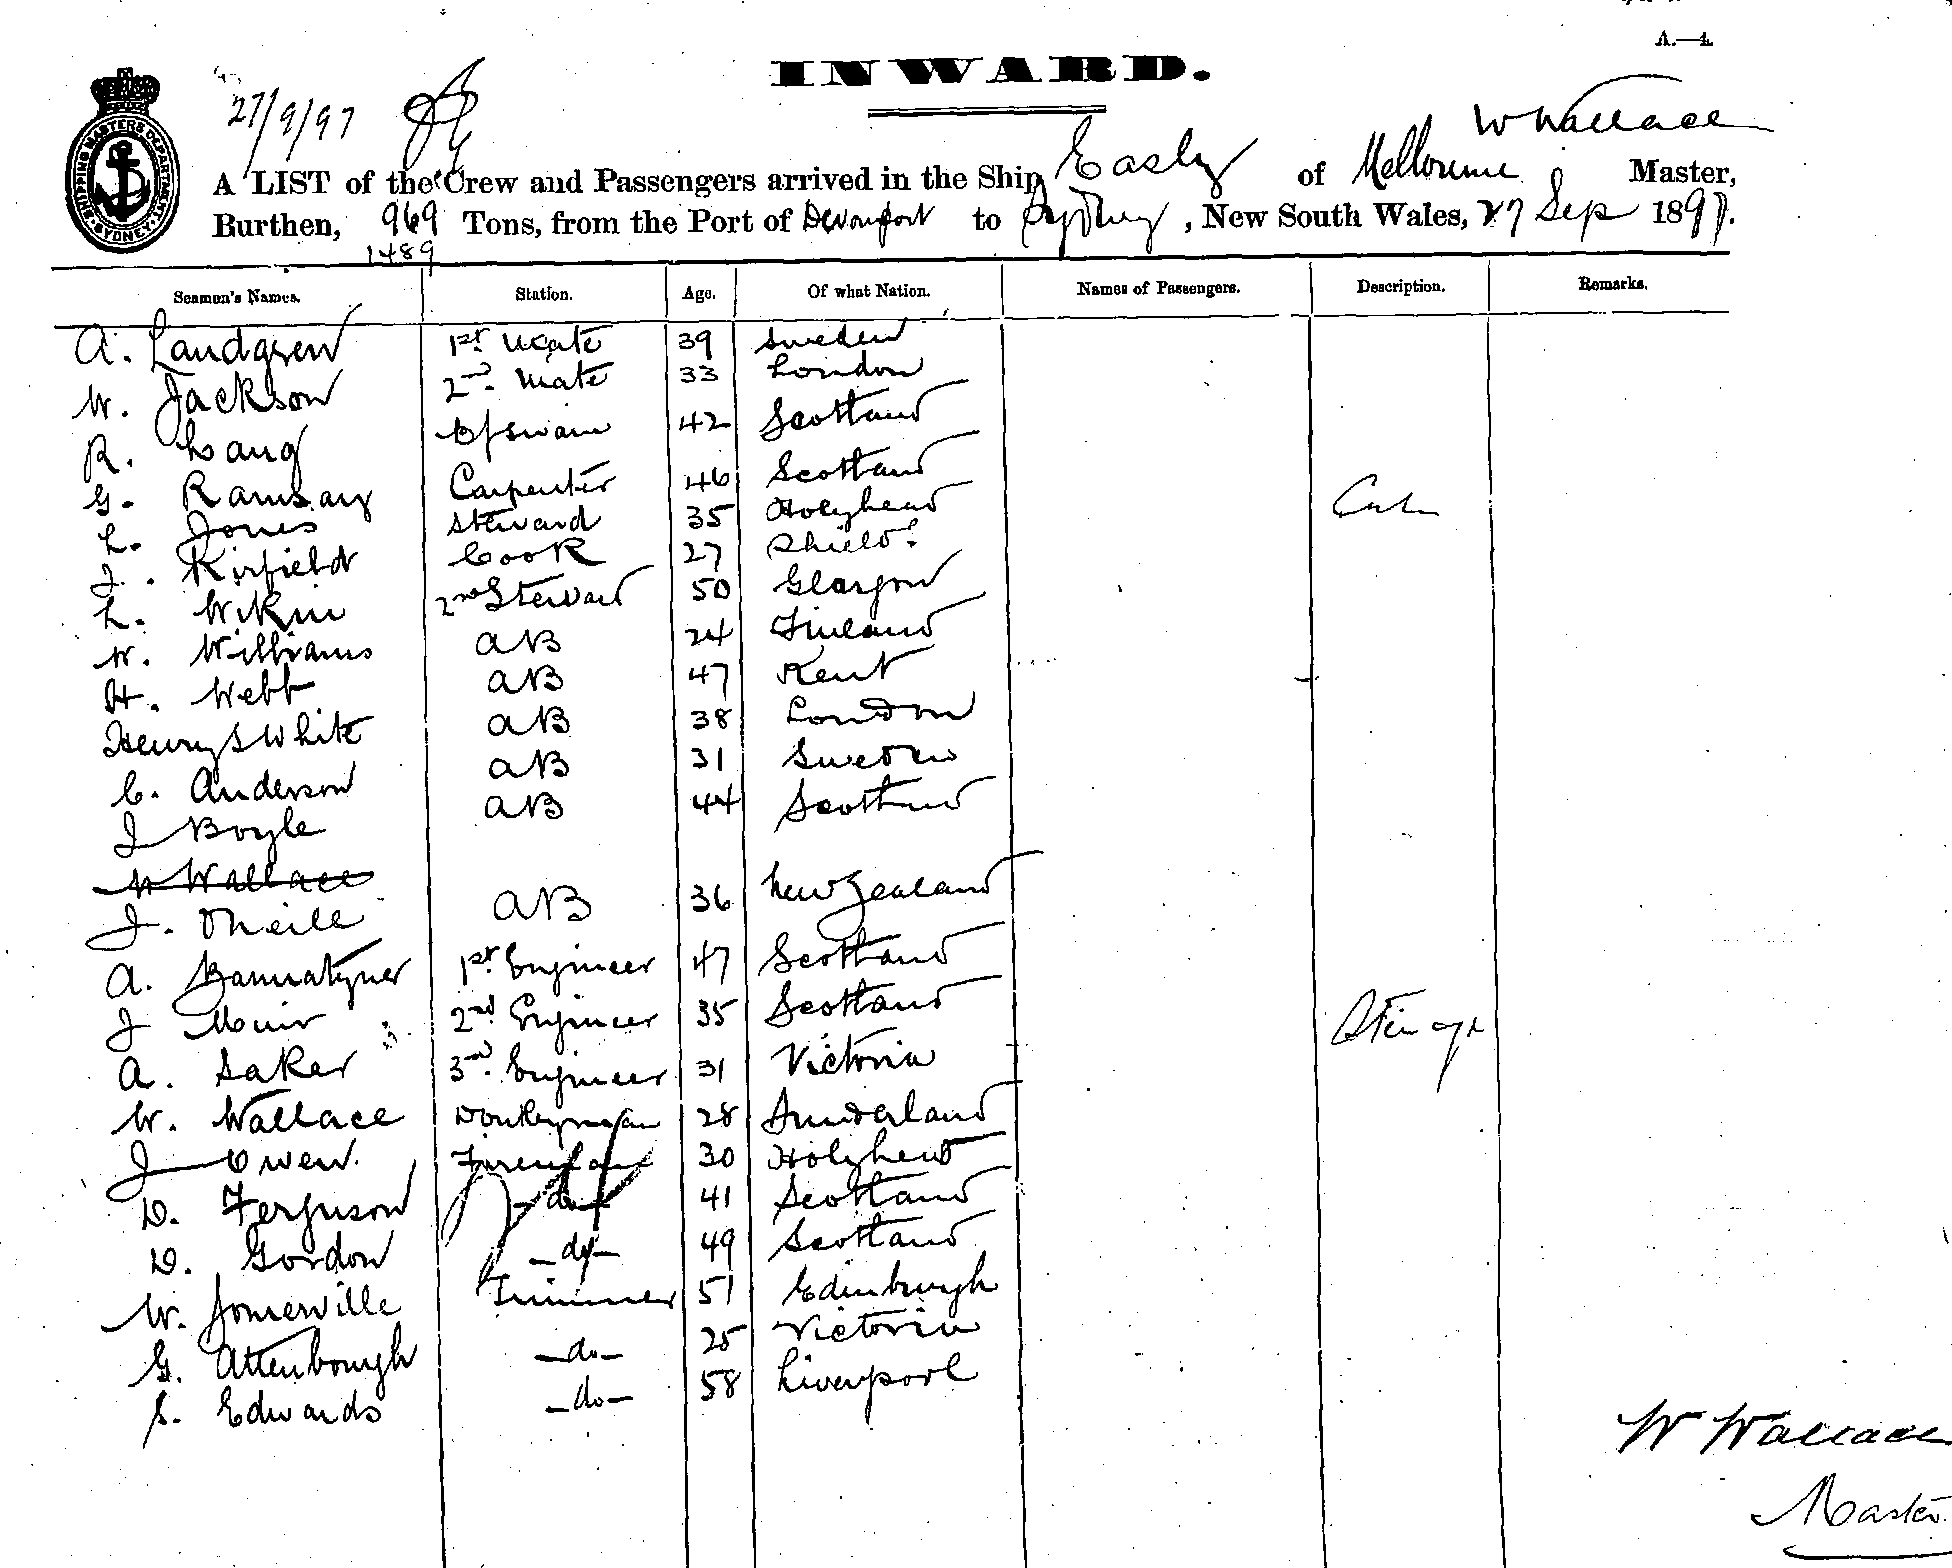 A.—4.
INWARD.
27/9/97
W Wallace
SHIPPING MASTERS DEPARTMENT SYDNEY
A LIST of the Crew and Passengers arrived in the Ship Easby of Melbourne Master,
Burthen, 969 Tons, from the Port of Devonport to Sydney, New South Wales, 27 Sep 1897.
1489
Seamen's Names. Station. Age. Of what Nation. Names of Passengers. Description. Remarks.
A. Landgren 1st Mate 39 Sweden
W. Jackson 2nd Mate 33 London
R. Lang B/swain 42 Scotland
G. Ramsay Carpenter 46 Scotland
L. Jones Steward 35 Holyhead
J. Kirfield Cook 27 Shields
L. Wikin 2nd Steward 50 Glasgow
W. Williams AB 24 Finland
H. Webb AB 47 Kent
Henry S White AB 38 London
C. Anderson AB 31 Sweden
J Boyle AB 44 Scotland
W Wallace
J. ONeill AB 36 New Zealand
A. Bannatyner 1st Engineer 47 Scotland
J Muir 2nd Engineer 35 Scotland
A. Saker 3rd Engineer 31 Victoria
W. Wallace Donkeyman 28 Sunderland
J Owen. Fireman 30 Holyhead
D. Ferguson do 41 Scotland
D. Gordon -do- 49 Scotland
W. Somerville Trimmer 51 Edinburgh
G. Attenborough -do- 25 Victoria
S. Edwards -do- 58 Liverpool
W Wallace
Master.